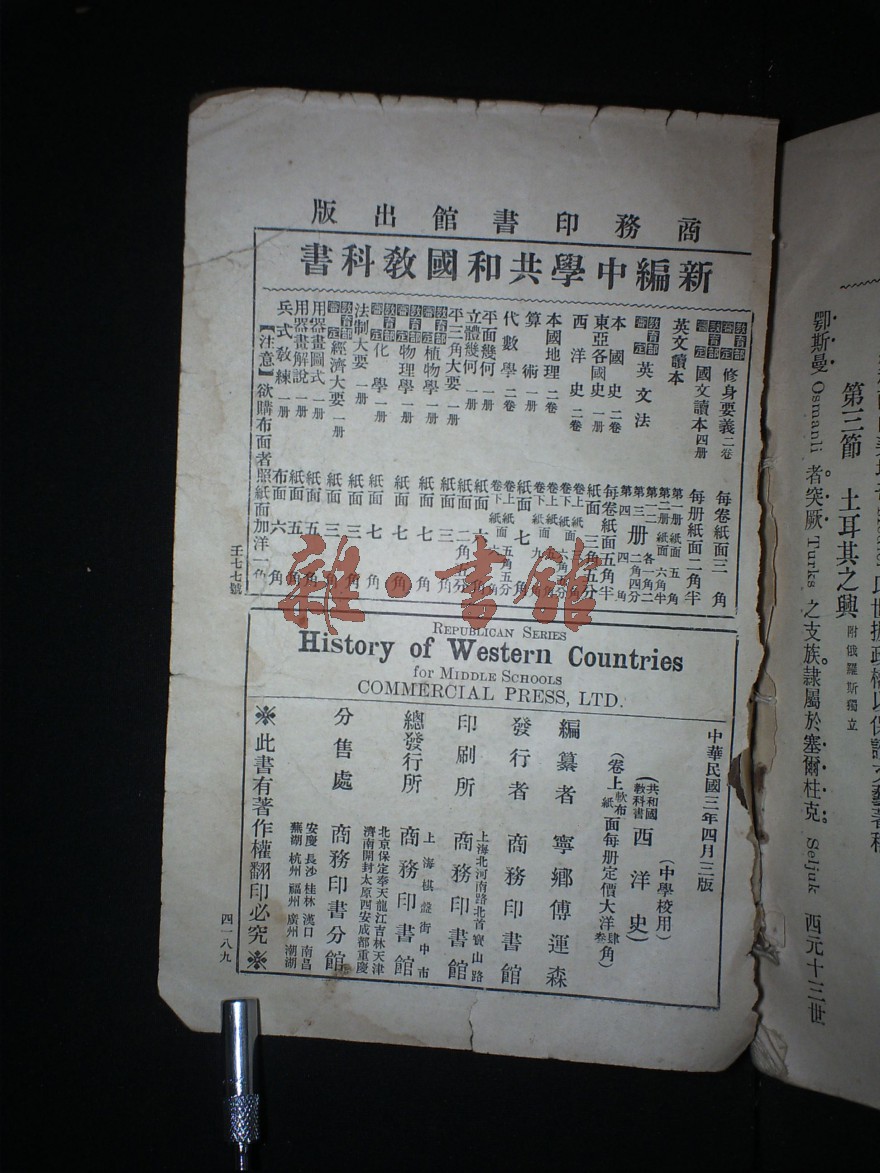 商務印書館出版
新編中學共和國教科書
教育部審定 修身要義 二卷 每卷紙面三角
教育部審定 國文讀本 四册 每册紙面二角半
英文讀本
教育部審定 英文法
本國史 二卷 每卷紙面五角半
東亞各國史 一册 紙面三角五分
西洋史 二卷
本國地理 二卷
算術 一册 紙面七角
代數學 二卷
平面幾何 一册 紙面六角
立體幾何 一册
平三角大要 一册
教育部審定 植物學 一册 紙面七角
教育部審定 物理學 一册 紙面七角
教育部審定 化學 一册 紙面七角
法制大要 一册 紙面三角
教育部審定 經濟大要 一册 紙面三角
用器畫圖式 一册 紙面五角
用器畫解說 一册 紙面五角
兵式教練 一册 布面六角
【注意】欲購布面者照紙面加洋一角
壬七七號
雜·書館
REPUBLICAN SERIES
History of Western Countries
for MIDDLE SCHOOLS
COMMERCIAL PRESS, LTD.
中華民國三年四月三版
(中學校用)
(共和國教科書西洋史)
(卷上軟布紙面每册定價大洋肆叁角)
編纂者 寧鄉傅運森
發行者 商務印書館
上海北河南路北首寶山路
印刷所 商務印書館
上海棋盤街中市
總發行所 商務印書館
北京保定奉天龍江吉林天津
濟南開封太原西安成都重慶
分售處 商務印書分館
安慶長沙桂林漢口南昌
蕪湖杭州福州廣州潮湖
※此書有著作權翻印必究※
四一八九
第三節 土耳其之興 附俄羅斯獨立
鄂斯曼 Osmanli 者突厥 Turks 之支族隸屬於塞爾柱克。Seljuk 西元十三世